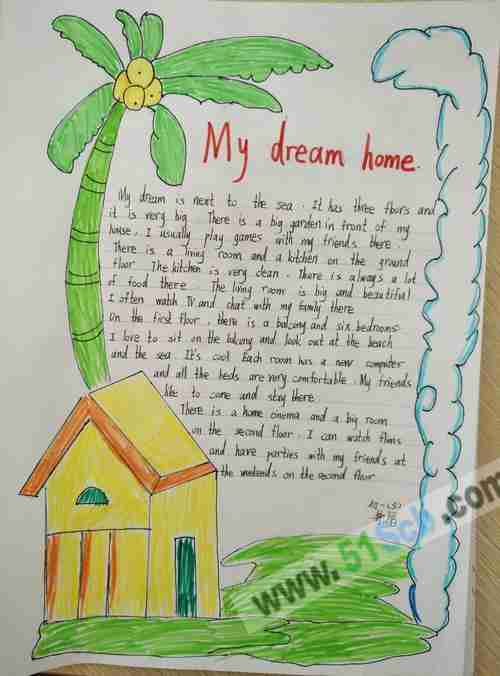 My dream home.
My dream is next to the sea. It has three floors and
it is very big. There is a big garden in front of my
house, I usually play games with my friends there.
There is a living room and a kitchen on the ground
floor. The kitchen is very clean. There is always a lot
of food there. The living room is big and beautiful
I often watch TV and chat with my family there
On the first floor, there is a balcony and six bedrooms.
I love to sit on the balcony and look out at the beach
and the sea. It's cool. Each room has a new computer
and all the beds are very comfortable. My friends
like to come and stay there.
There is a home cinema and a big room
on the second floor. I can watch films
and have parties with my friends at
the weekends on the second floor